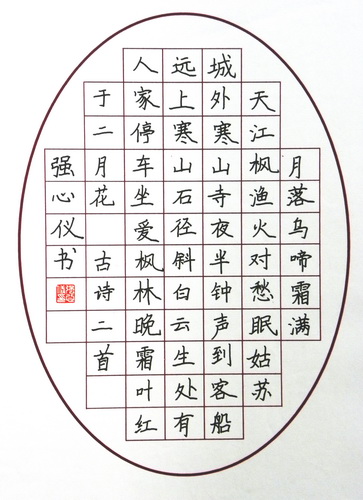 月落乌啼霜满
天江枫渔火对愁眠姑苏
城外寒山寺夜半钟声到客船
远上寒山石径斜白云生处有
人家停车坐爱枫林晚霜叶红
于二月花 古诗二首
强心仪书